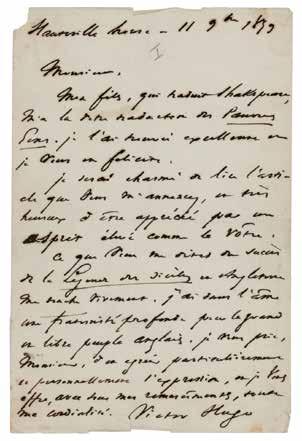 Hauteville house – 11 9bre 1859
I
Monsieur,
Mon fils, qui traduit Shakespeare,
m'a lu votre traduction des Pauvres
Gens. je l'ai trouvée excellente et
je vous en félicite.
je serai charmé de lire l'arti-
cle que vous m'annoncez, et très
heureux d'être apprécié par un
esprit élevé comme le vôtre.
Ce que vous me dites du succès
de la Légende des Siècles en Angleterre
me touche vivement. j'ai dans l'âme
une fraternité profonde pour le grand
et libre peuple anglais. je vous prie,
Monsieur, d'en agréer particulièrement
et personnellement l'expression, et je vous
offre, avec tous mes remercîments, toute
ma cordialité.
Victor Hugo